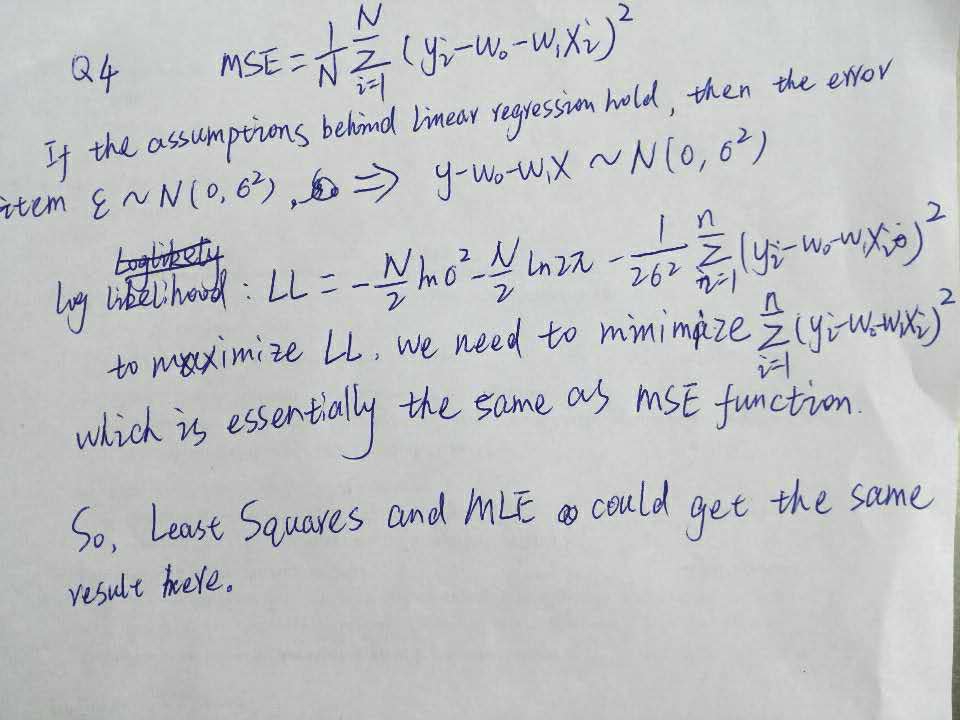 Q4 MSE = 1/N N∑i=1 (yi-w0-w1xi)²
If the assumptions behind Linear regression hold, then the error
item ε ~ N(0, 6²), ⇒ y-w0-w1x ~ N(0, 6²)
Loglikely
log likelihood : LL = -N/2 lnσ² - N/2 ln2π - 1/26² n∑n=1 (yi-w0-w1xi)²
to maximize LL, we need to minimize n∑i=1 (yi-w0-w1xi)²
which is essentially the same as MSE function.
So, Least Squares and MLE could get the same
result here.